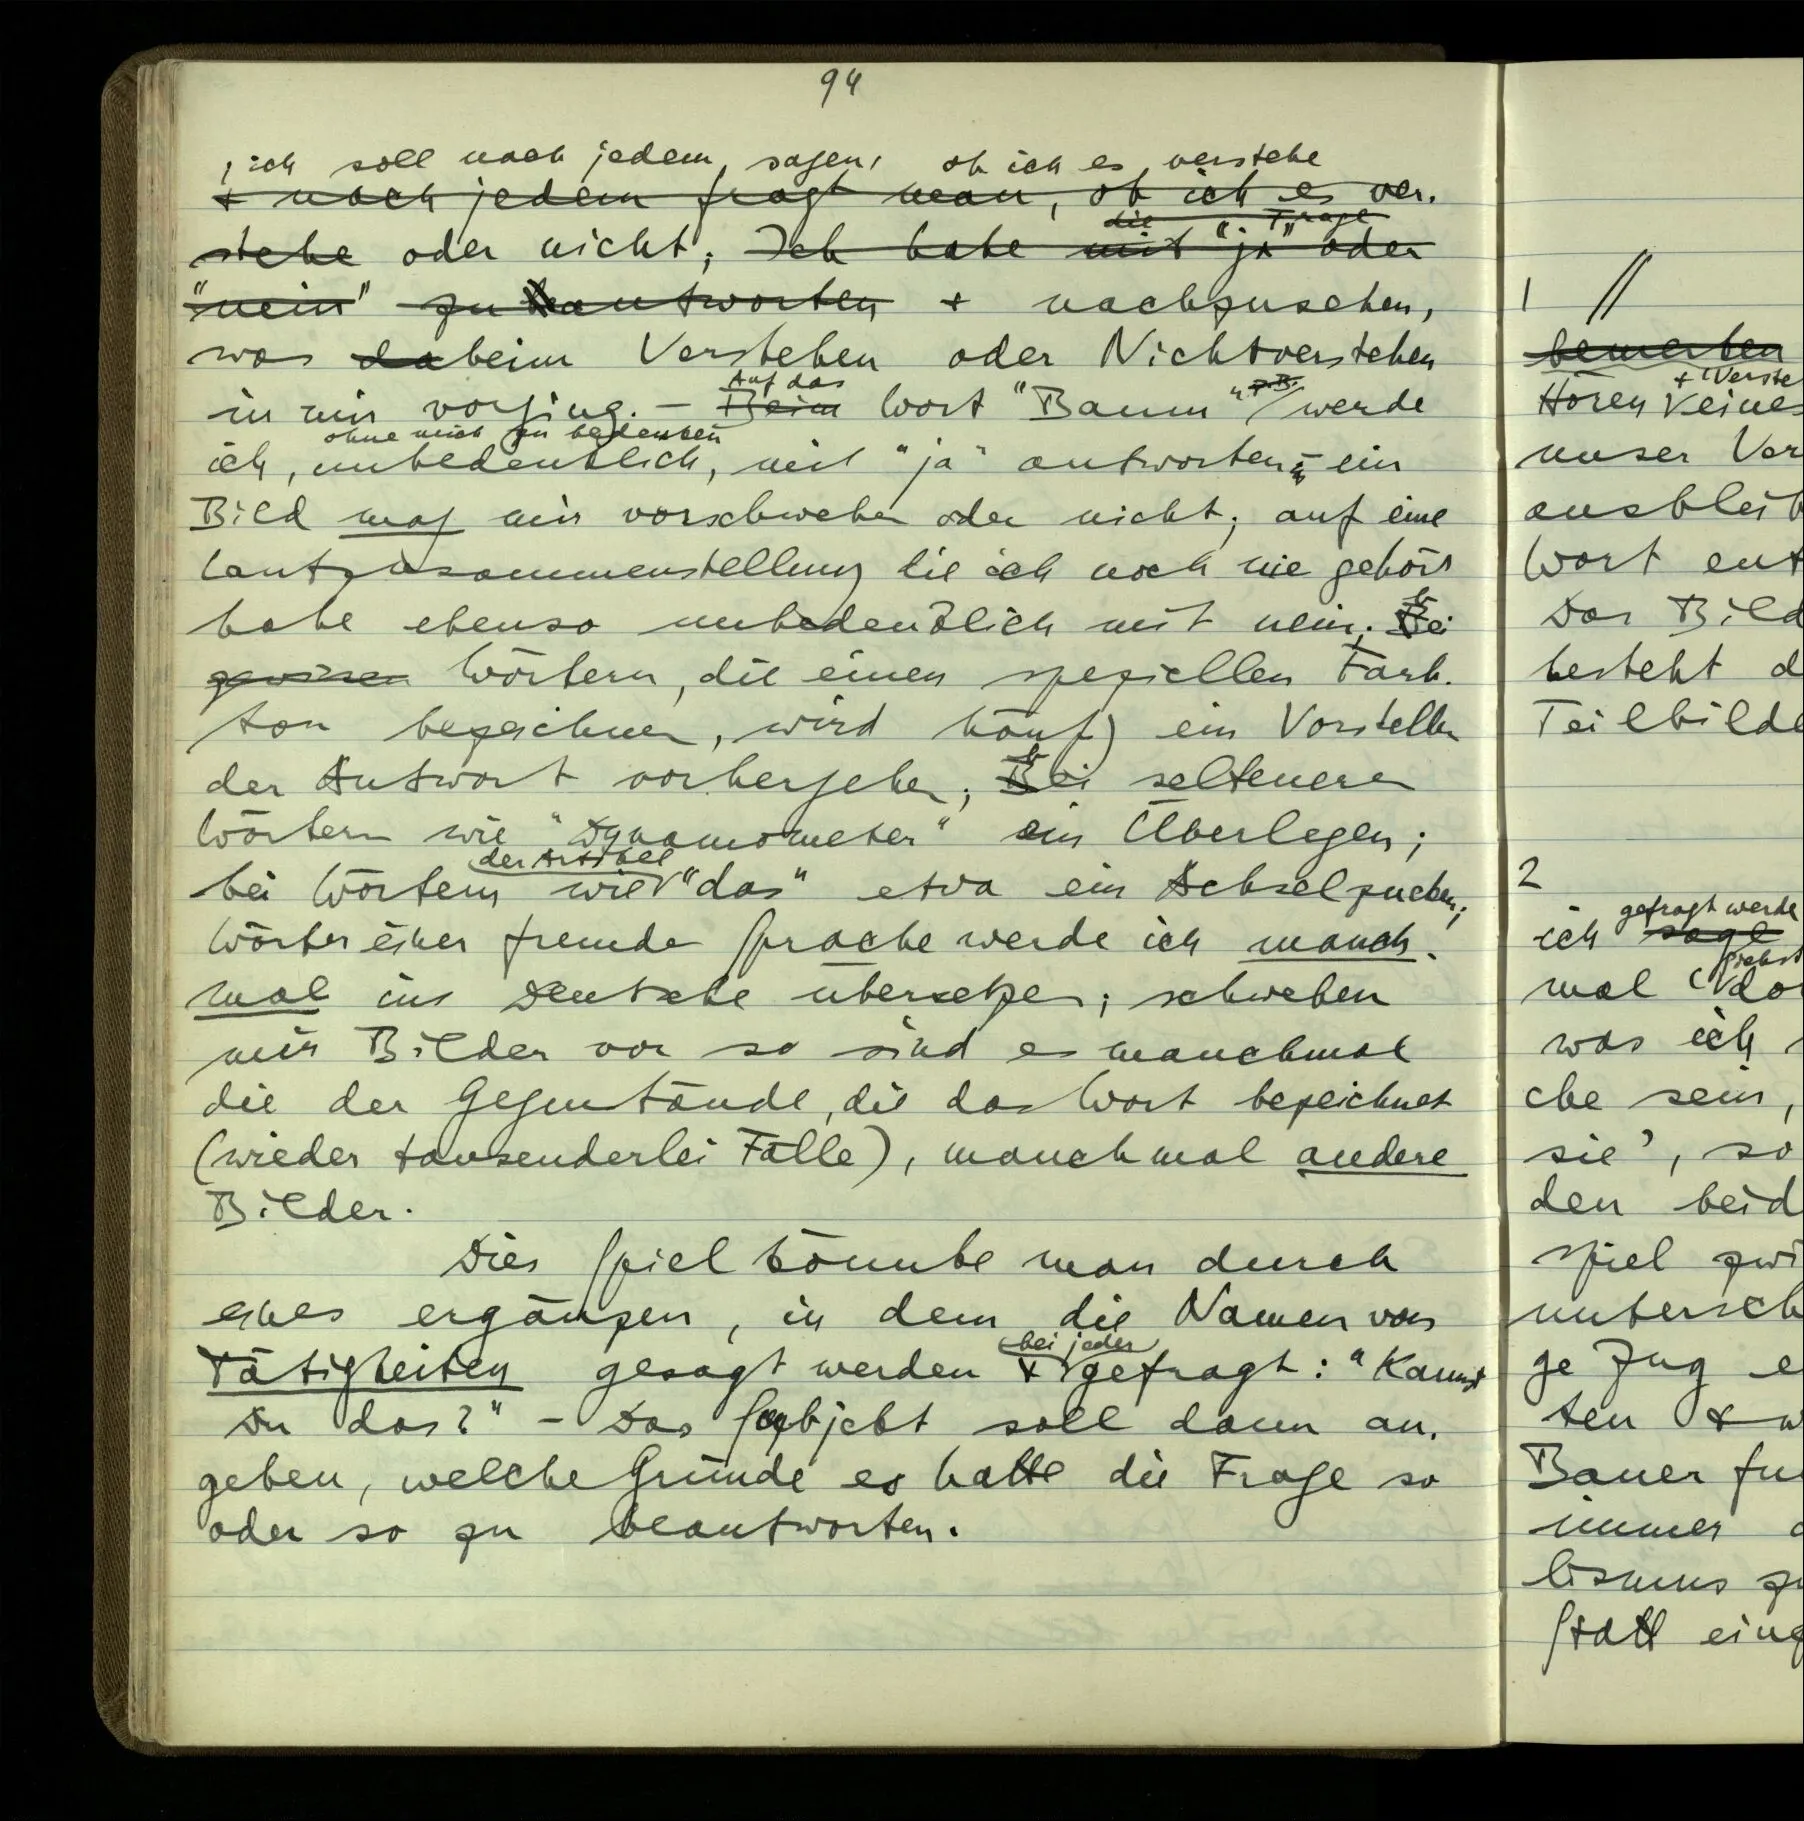 94
; ich soll nach jedem, sagen, ob ich es verstehe
+ nach jedem fragt man, ob ich es ver-
die Frage
stehe oder nicht; Ich habe mit "ja" oder
"nein" zu antworten + nachzusehen,
was da beim Verstehen oder Nichtverstehen
Auf das
in mir vorging. – Beim Wort "Baum" z.B. werde
ohne mich zu bedenken
ich, unbedenklich, mit "ja" antworten; ein
Bild mag mir vorschweben oder nicht; auf eine
Lautzusammenstellung die ich noch nie gehört
habe ebenso unbedenklich mit nein. Bei
gewissen Wörtern, die einen speziellen Farb-
ton bezeichnen, wird häufig ein Vorstellen
der Antwort vorhergehen; Bei selteneren
Wörtern wie "Dynamometer" ein Überlegen;
der Artikel
bei Wörtern wie "das" etwa ein Achselzucken;
Wörter einer fremden Sprache werde ich manch-
mal ins Deutsche übersetzen; schweben
mir Bilder vor so sind es manchmal
die der Gegenstände, die das Wort bezeichnet
(wieder tausenderlei Fälle), manchmal andere
Bilder.
Dies Spiel könnte man durch
eines ergänzen, in dem die Namen von
bei jeder
Tätigkeiten gesagt werden + gefragt: "Kannst
Du das?" – Das Subjekt soll dann an-
geben, welche Gründe es hatte die Frage so
oder so zu beantworten.
1 //
bemerken
+ Verste
Hören eines
unser Ver
ausbleib
Wort ent
Das Bild
besteht d
Teilbilde
2
gefragt werde
ich sage
siehst
mal 'do
was ich
che sein,
sie', so
den beid
spiel zwi
untersch
ge Zug e
ten + w
Bauer fu
immer
lismus zu
Statt eing